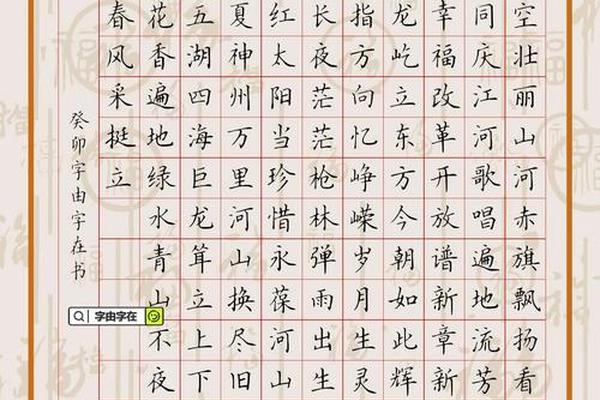 空壮丽山河赤旗飘扬看
同庆江河歌唱遍地流芳
幸福改革开放谱新章新
龙屹立东方今朝如此辉
指方向忆峥嵘岁月生灵
长夜茫茫枪林弹雨出生
红太阳当珍惜永葆河山
夏神州万里河山换尽旧
五湖四海巨龙耸立上下
花香遍地绿水青山不夜
春风采挺立
癸卯字由字在书
字由字在